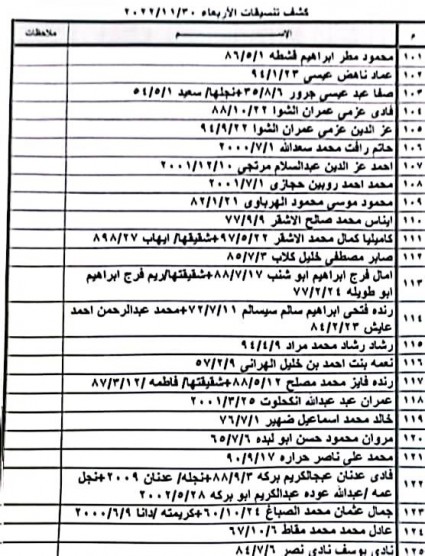 كشف تنسيقات الأربعاء ٢٠٢٢/١١/٣٠
م الاســـــــــم ملاحظات
١٠١ محمود مطر ابراهيم قشطه ٨٦/٥/١
١٠٢ عماد ناهض عيسى ٩٤/١/٢٣
١٠٣ صفا عبد عيسى جرور ٣٥/٨/٦+نجلها/ سعيد ٥٤/٥/١
١٠٤ فادى عزمى عمران الشوا ٨٨/١٠/٢٢
١٠٥ عز الدين عزمى عمران الشوا ٩٤/٩/٢٢
١٠٦ حاتم رافت محمد سعدالله ٢٠٠٠/٧/١
١٠٧ احمد عز الدين عبدالسلام مرتجى ٢٠٠١/١٢/١٠
١٠٨ محمد احمد روبين حجازى ٢٠٠١/٧/١
١٠٩ محمود موسى محمود الهرباوى ٨٢/١/٢١
١١٠ ايناس محمد صالح الاشقر ٧٧/٩/٩
١١١ كاميليا كمال محمد الاشقر ٩٧/٥/٢٢+شقيقها/ ايهاب ٨٩٨/٢٧
١١٢ صابر مصطفى خليل كلاب ٨٥/٧/٣
١١٣ امال فرج ابراهيم ابو شنب ٨٨/٧/١٧+شقيقتها/ريم فرج ابراهيم
ابو طويله ٧٧/٢/٢٤
١١٤ رنده فتحى ابراهيم سالم سيسالم ٧٢/٧/١١+محمد عبدالرحمن احمد
عايش ٨٤/٢/٢٣
١١٥ رشاد رشاد محمد مراد ٩٤/٤/٩
١١٦ نعمه بنت احمد بن خليل الهرانى ٥٧/٢/٩
١١٧ رنده فايز محمد مصلح ٨٨/٥/١٢+شقيقتها/ فاطمه ٨٧/٣/١٢/
١١٨ عمران عبد عبدالله الكحلوت ٢٠٠١/٣/٢٥
١١٩ خالد محمد اسماعيل ضهير ٧٦/٧/١
١٢٠ مروان محمود حسن ابو لبده ٦٥/٧/٦
١٢١ محمد على ناصر حراره ٩٠/٩/١٧
١٢٢ فادى عدنان عبجالكريم بركه ٨٨/٩/٣+نجله/ عدنان ٢٠٠٩+نجل
عمه /عبدالله عوده عبدالكريم ابو بركه ٢٠٠٢/٥/٢٨
١٢٣ جمال عثمان محمد الصباغ ٦٠/١٠/٢٤+كريمته /دانا ٢٠٠٠/٦/٩
١٢٤ عادل محمد محمد مقاط ٦٧/١٠/٦
١٢٥ نادى يوسف نادى نصر ٨٤/٧/٦